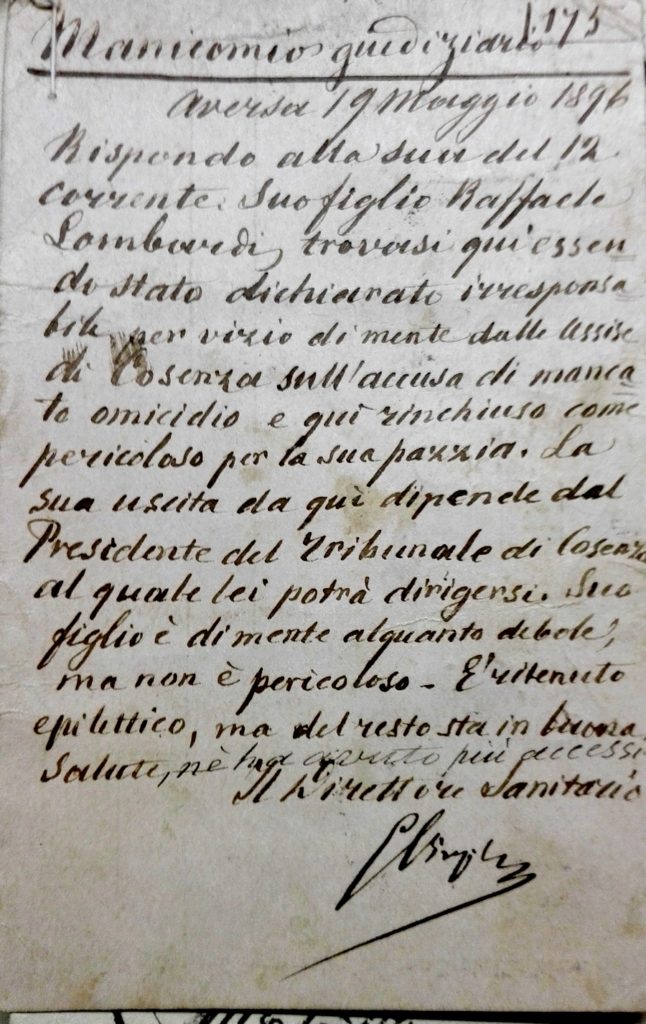 1175
Manicomio giudiziario
Aversa 19 Maggio 1896
Rispondo alla sua del 12
corrente. Suo figlio Raffaele
Lombardi, trovasi qui essen
do stato dichiarato irresponsa
bile per vizio di mente dalle Assise
di Cosenza sull'accusa di manca
to omicidio e qui rinchiuso come
pericoloso per la sua pazzia. La
sua uscita da quì dipende dal
Presidente del Tribunale di Cosenza
al quale lei potrà dirigersi. Suo
figlio è di mente alquanto debole,
ma non è pericoloso - E' ritenuto
epilettico, ma del resto sta in buona
salute, nè ha avuto più accessi
Il Direttore Sanitario
GVirgilio